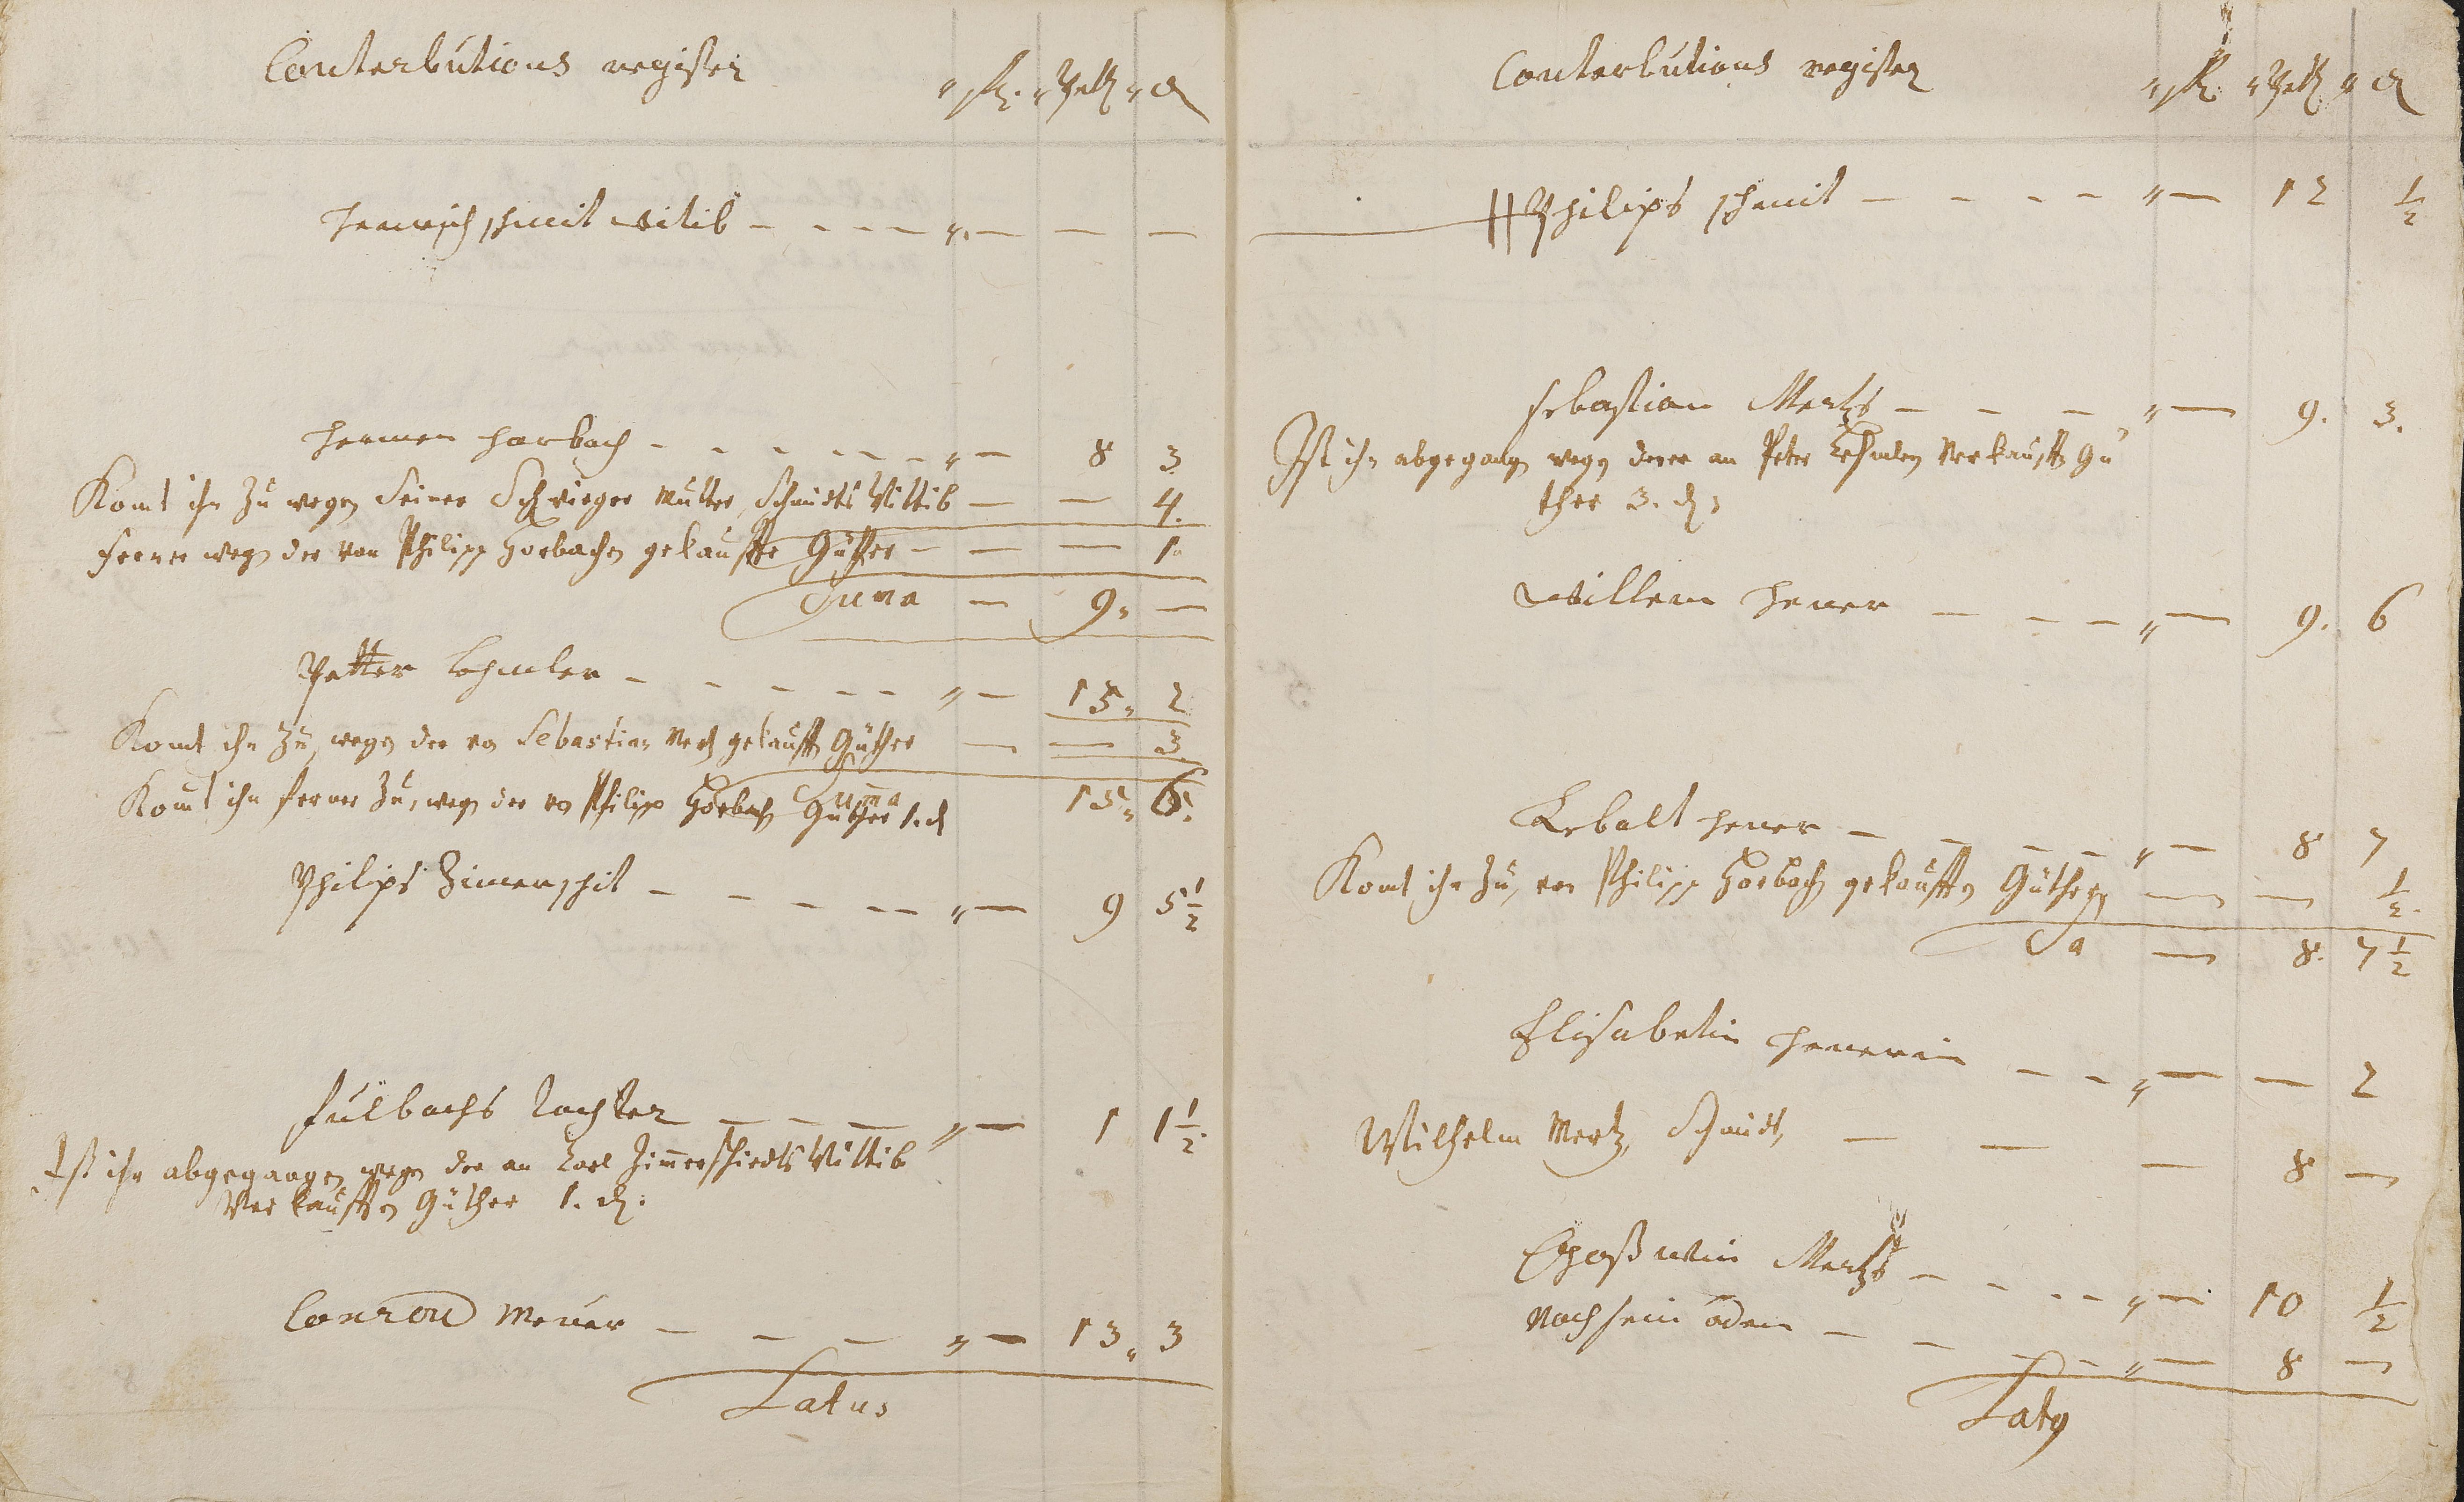 Conterbutions register
" fl. " Petz " d
Henrich schmit witib - - - - " - - -
Hermen horbach - - - - - - " - 8 3
Komt ihr zu wegen Seiner Schwieger Mutter, Schmidts Wittib - - 4.
ferner wegen der von Philipp Horbachen gekauffte Güther - - - 1.
Suma - 9. -
Petter Lehmler - - - - - " - 13. 2
Komt ihr zu, wegen der von Sebastian Mertz gekaufften Güther - - 3
Suma 13. 6.
Komt ihr ferner zu, wegen der von Philipp Horbach Güther 1. d
Philips Zimerschit - - - - - " - 9 5 1/2
fulbachs Tochter - - - " - 1 1 1/2.
Ist ihr abgegangen wegen der an Carl Zimmerschiedts Wittib
Verkaufften Güther 1. d.
Conrad Meuer - - - " - 13. 3
Latus
Conterbutions register
" fl. " Petz " d
Philips schmit - - - - " - 12 1/2
sebastian Mertz - - - " - 9. 3.
Ist ihr abgegangen wegen derer an Peter Lehmlern Verkaufft Gü
ther 3. d.
Willem Heuer - - - " - 9. 6
Lebalt heuer - - - - " - 8 7
Komt ihr zu, von Philipp Horbach gekaufften Güthern - - 1/2.
Sa - 8. 7 1/2
Elisabetin Heuerin - - " - - 2
Wilhelm Mertz, Schmidt, - - - 8 -
Mertz - - - - " - 10 1/2
Noch sein - - - - - " - 8 -
Latus